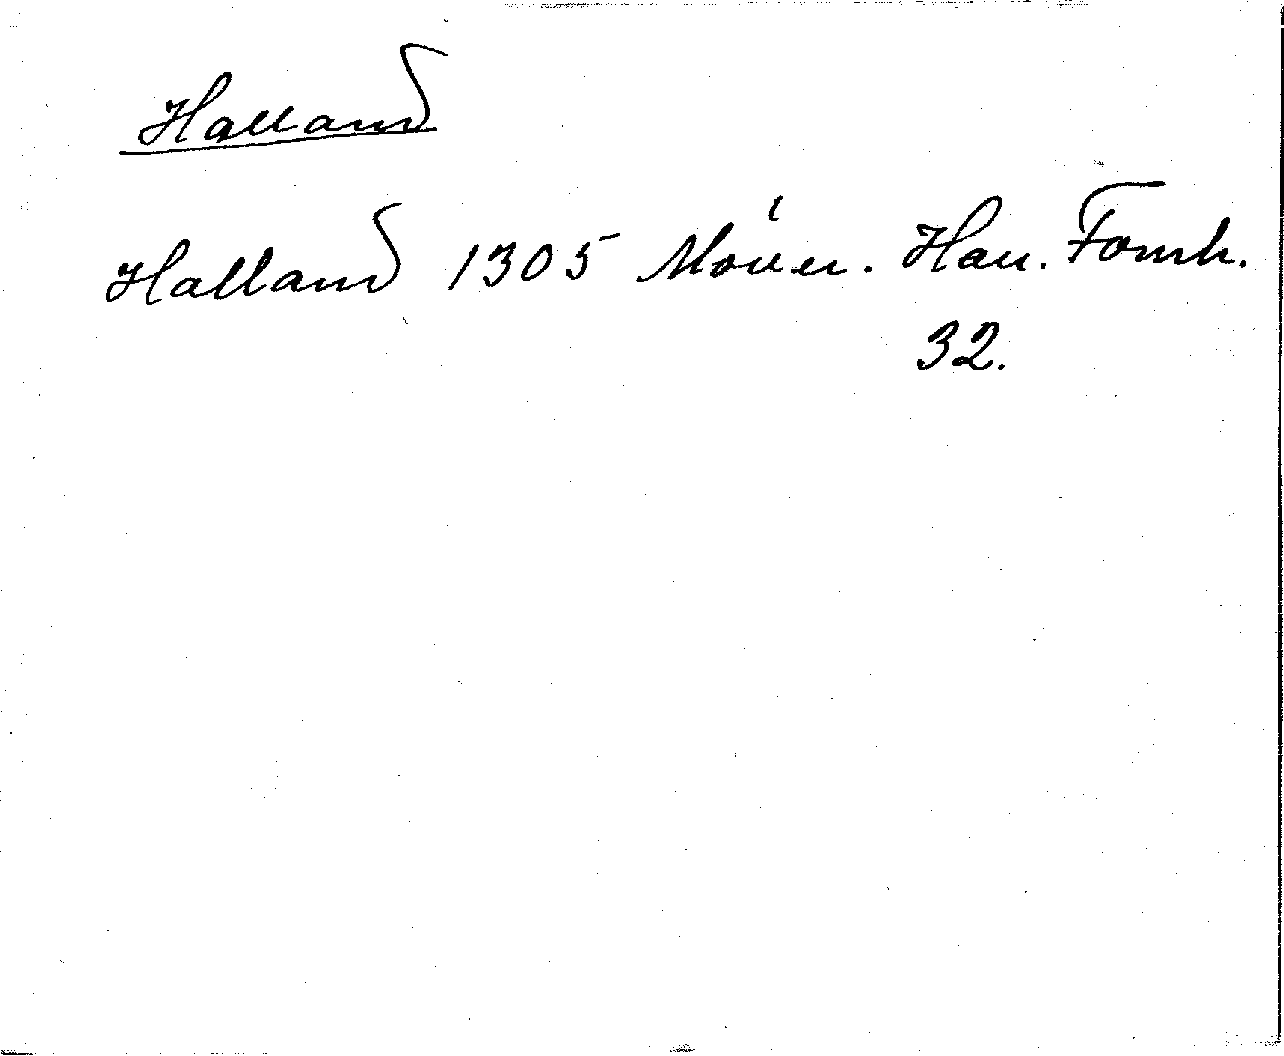 Halland
Halland 1305 Möller. Hall. Fornh.
32.